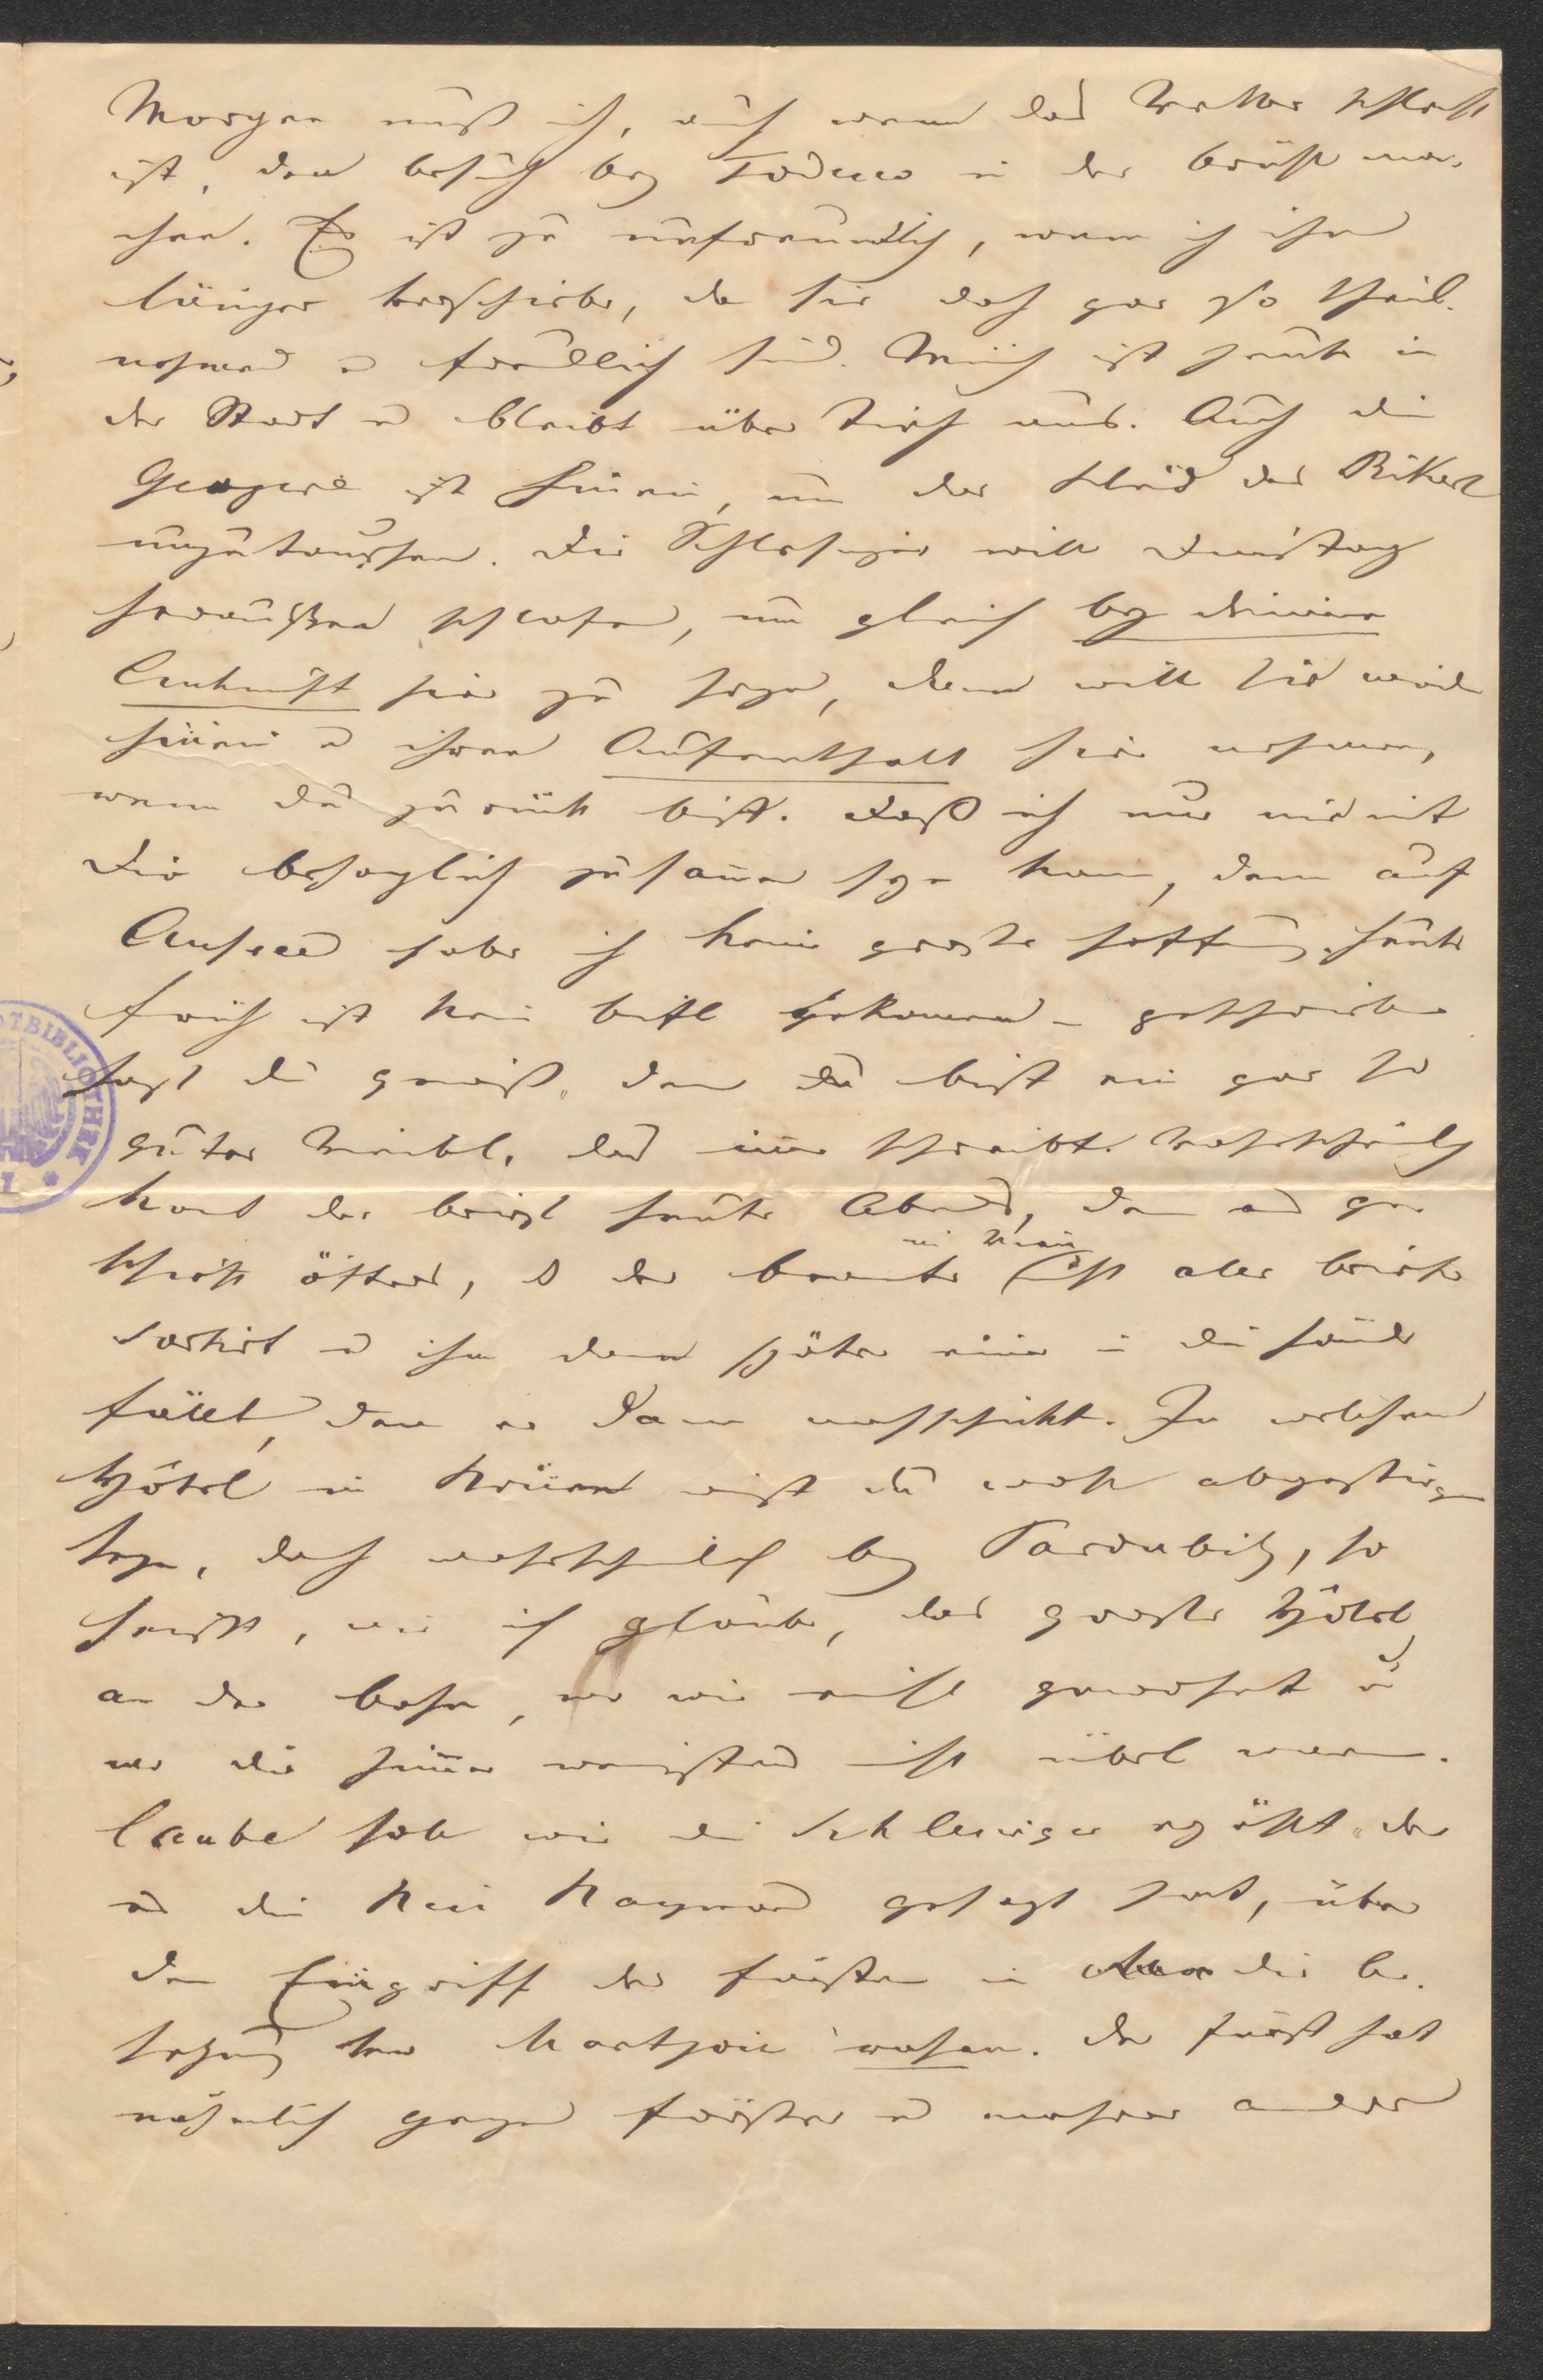 Morgen muß ich, auch wenn das Wetter schlecht
ist, den besuch bey Todesco in der brühl ma-
chen. Es ist zu unfreundlich, wenn ich ihn
länger verschiebe, da sie doch gar so theil-
nehmend u freundlich sind. Minch ist heute in
der Stadt u bleibt über Tisch aus. Auch die
ist hinein, um das Kleid der
umzutauschen. Die Schlesinger will Dienstag
heraußen schlafen, um gleich bey deiner
Ankunft hier zu seyn, dann will sie wieder
hinein u ihren Aufenthalt hier nehmen,
wenn du zurück bist. Daß ich nur nie mit
Dir behaglich zusamen seyn kann, denn auf
Aussee habe ich keine große hoffnung. heute
früh ist kein briefl gekomen – geschrieben
hast du gewiß, denn du bist ein gar so
gutes Weibl, das imer schreibt. Wahrscheinlich
komt der briefl heute Abends, denn das ge-
schieht öfters, daß der beamte in Wien nicht alle briefe
sortirt u ihm dann später einer in die hände
fällt, den er dann nachschickt. In welchem
Hôtel in Brünn wirst du wohl abgestiegen
seyn, doch wahrscheinlich bey Pardubitz, so
heißt, wie ich glaube, das große Hôtel
an der bahn, wo wir einst gewohnt u
wo die Zimmer wenigstens nicht übel waren.
Laube soll wie die Schlesinger erzählt, der
es die gesagt hat, über
den Eingriff des fürsten in die be-
setzung der rasen. Der fürst hat
nähmlich gegen förster u mehrere andere